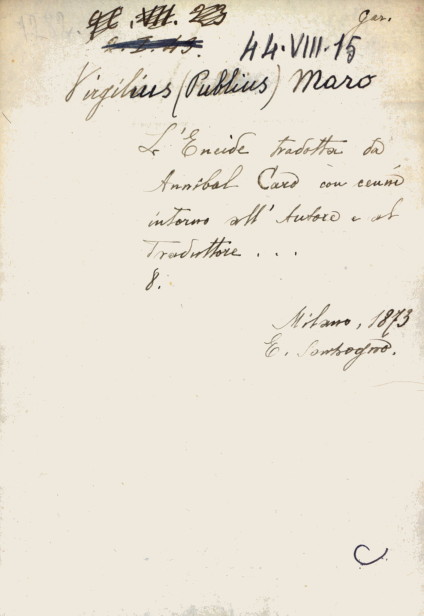 gar.
44.VIII.15
Virgilius (Publius) Maro
L'Eneide tradotta da
Annibal Caro con cenni
intorno all' Autore e al
Traduttore ...
8.
Milano, 1873
E. Sonzogno.